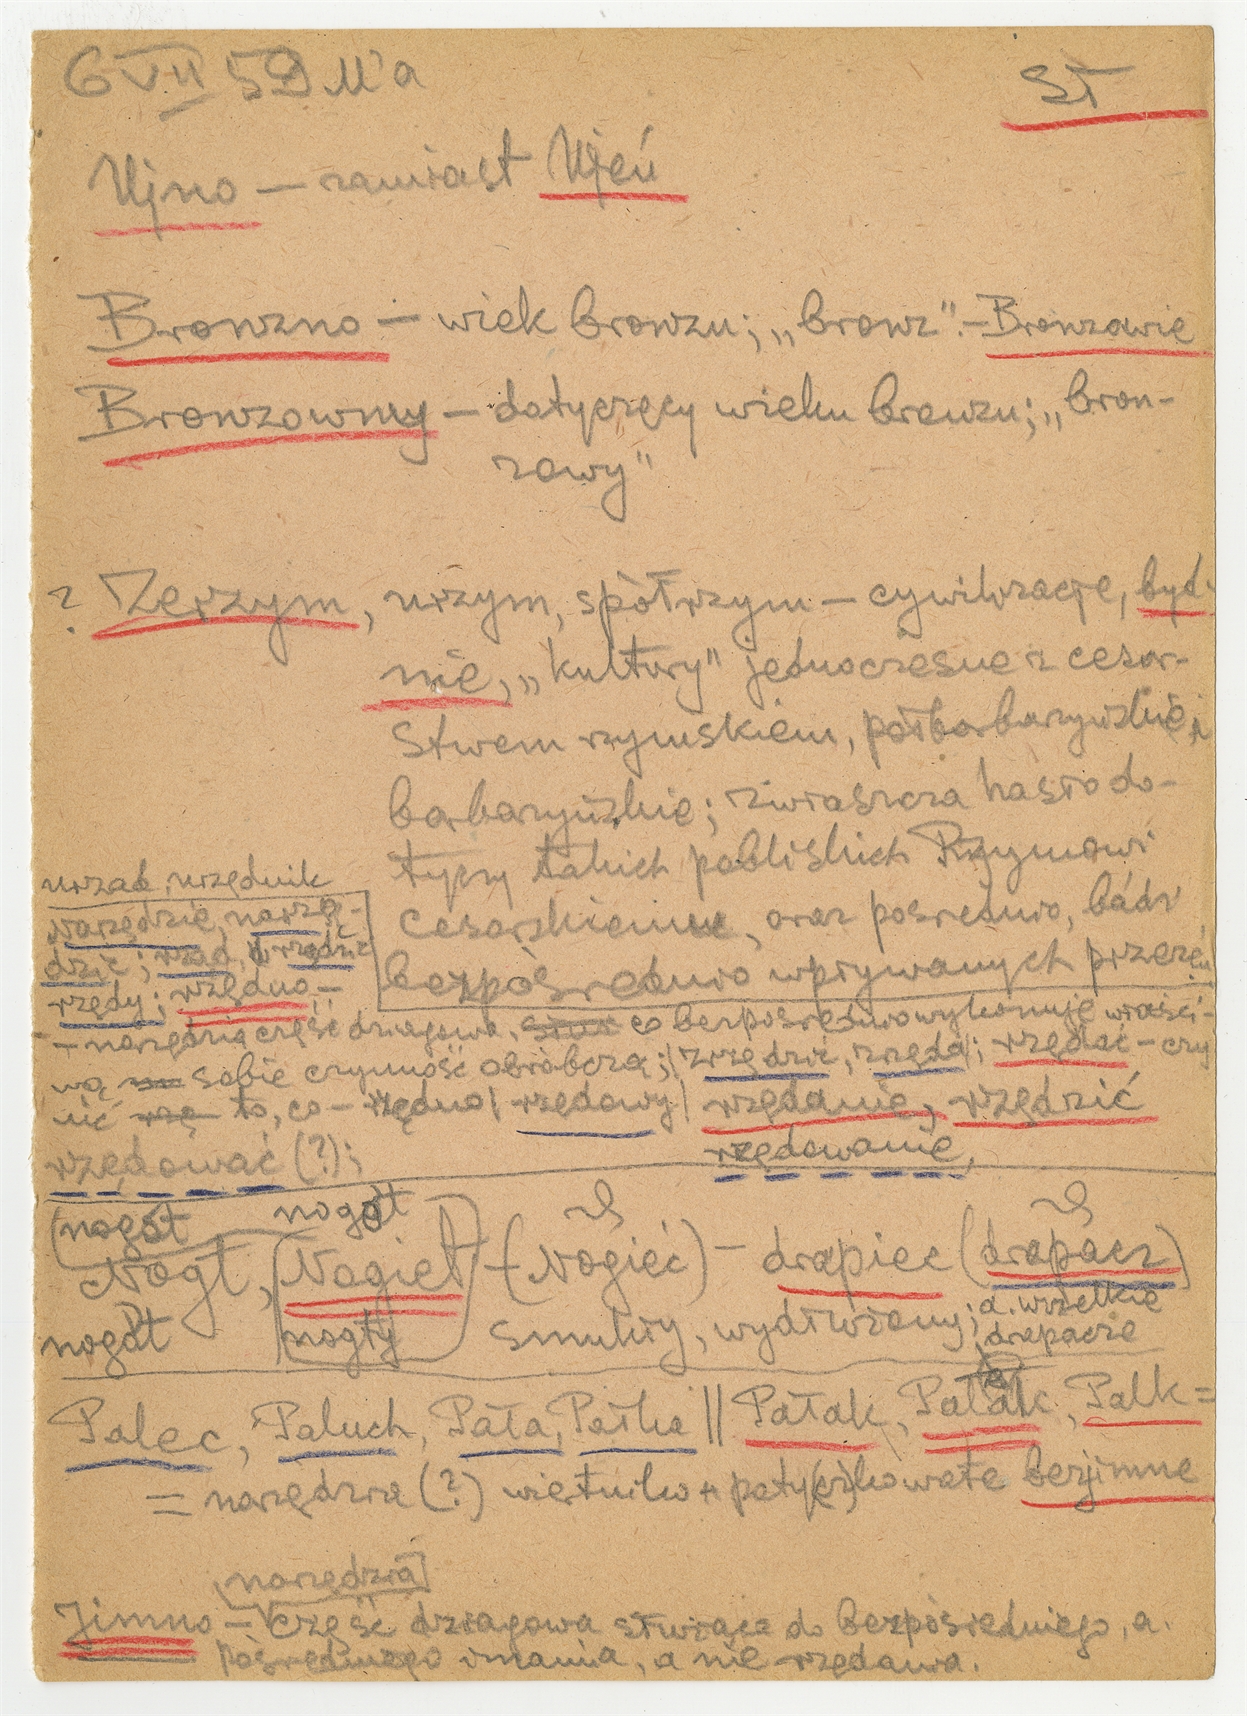 6 VII 59 M'a
ST
Ujno — zamiast Ujeń
Bronzno — wiek bronzu; „bronz”. — Bronzowie
Bronzowny — dotyczący wieku bronzu; „bron-
zowy”
? Zerzym, urzym, spółrzym — cywilizacje, byt-
nie, „kultury” jednoczesne z cesar-
stwem rzymskiem, półbarbaryńskie, i
barbaryńskie; zwłaszcza hasło do-
tyczy takich pobliskich Rzymowi
cesarskiemu, oraz pośrednio, bądź
bezpośrednio wpływanych przezeń
urząd, urzędnik
Narzędzie, narzę-
dzić; rząd, urządzić
rzędy; rzędno, —
— narzędzia część działowa, co bezpośrednio wykonuje właści-
wą sobie czynność obróbczą; zrzędzić, zrzęda; rzędać — czy
nić to, co — rzędno rzędowy rzędanie, rzędzić
rzędować (?); rzędowanie,
(nogót nogot
Nogt, Nogiet — (Nogieć) — drapiec (drapacz)
nogót nogty smukły, wydłużony; a. wszelkie
drapacze
Palec, Paluch, Pała, Pałka || Pałak, Pałák, Palk =
= narzędzia (?) wiertniko patykowate bezjimne
narzędzia
Jimno — część działowa służąca do bezpośredniego, a.
pośredniego imania, a nie rzędania.